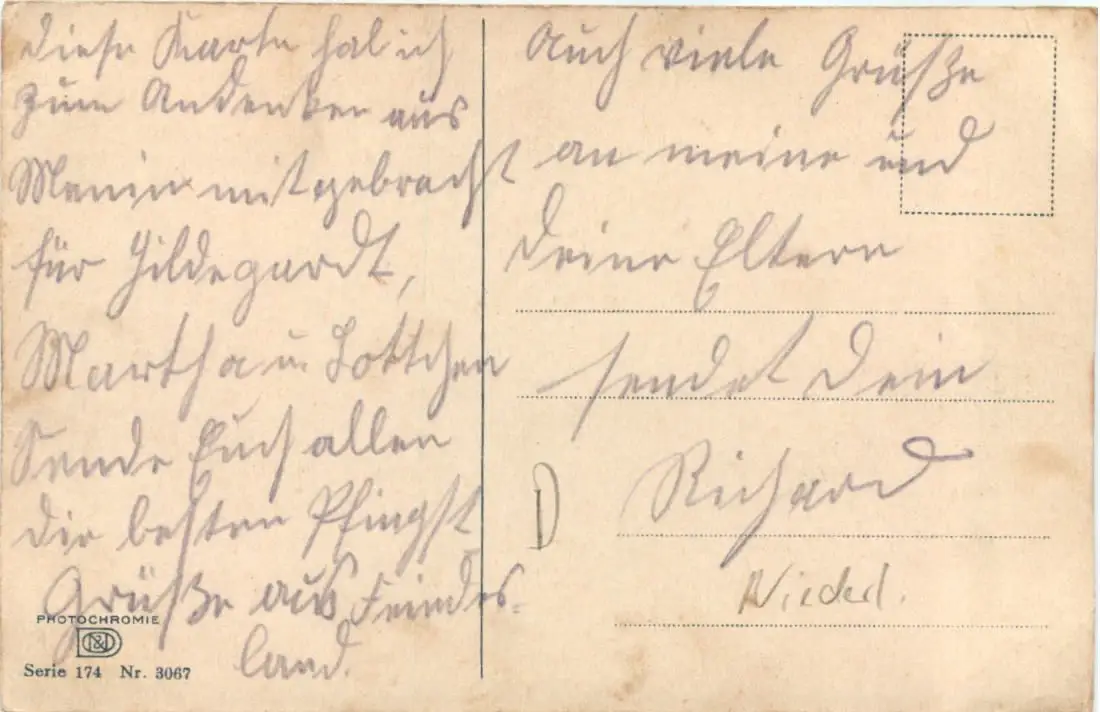 Diese Karte hab ich
zum Andenken aus
Menin mitgebracht
für Hildegardt,
Martha u. Lottchen
Sende Euch allen
die besten Pfingst
Grüße aus Feindes-
land.
PHOTOCHROMIE
N&D
Serie 174 Nr. 3067
Auch viele Grüße
an meine und
deine Eltern
sendet Dein
Richard
D
Niederl.